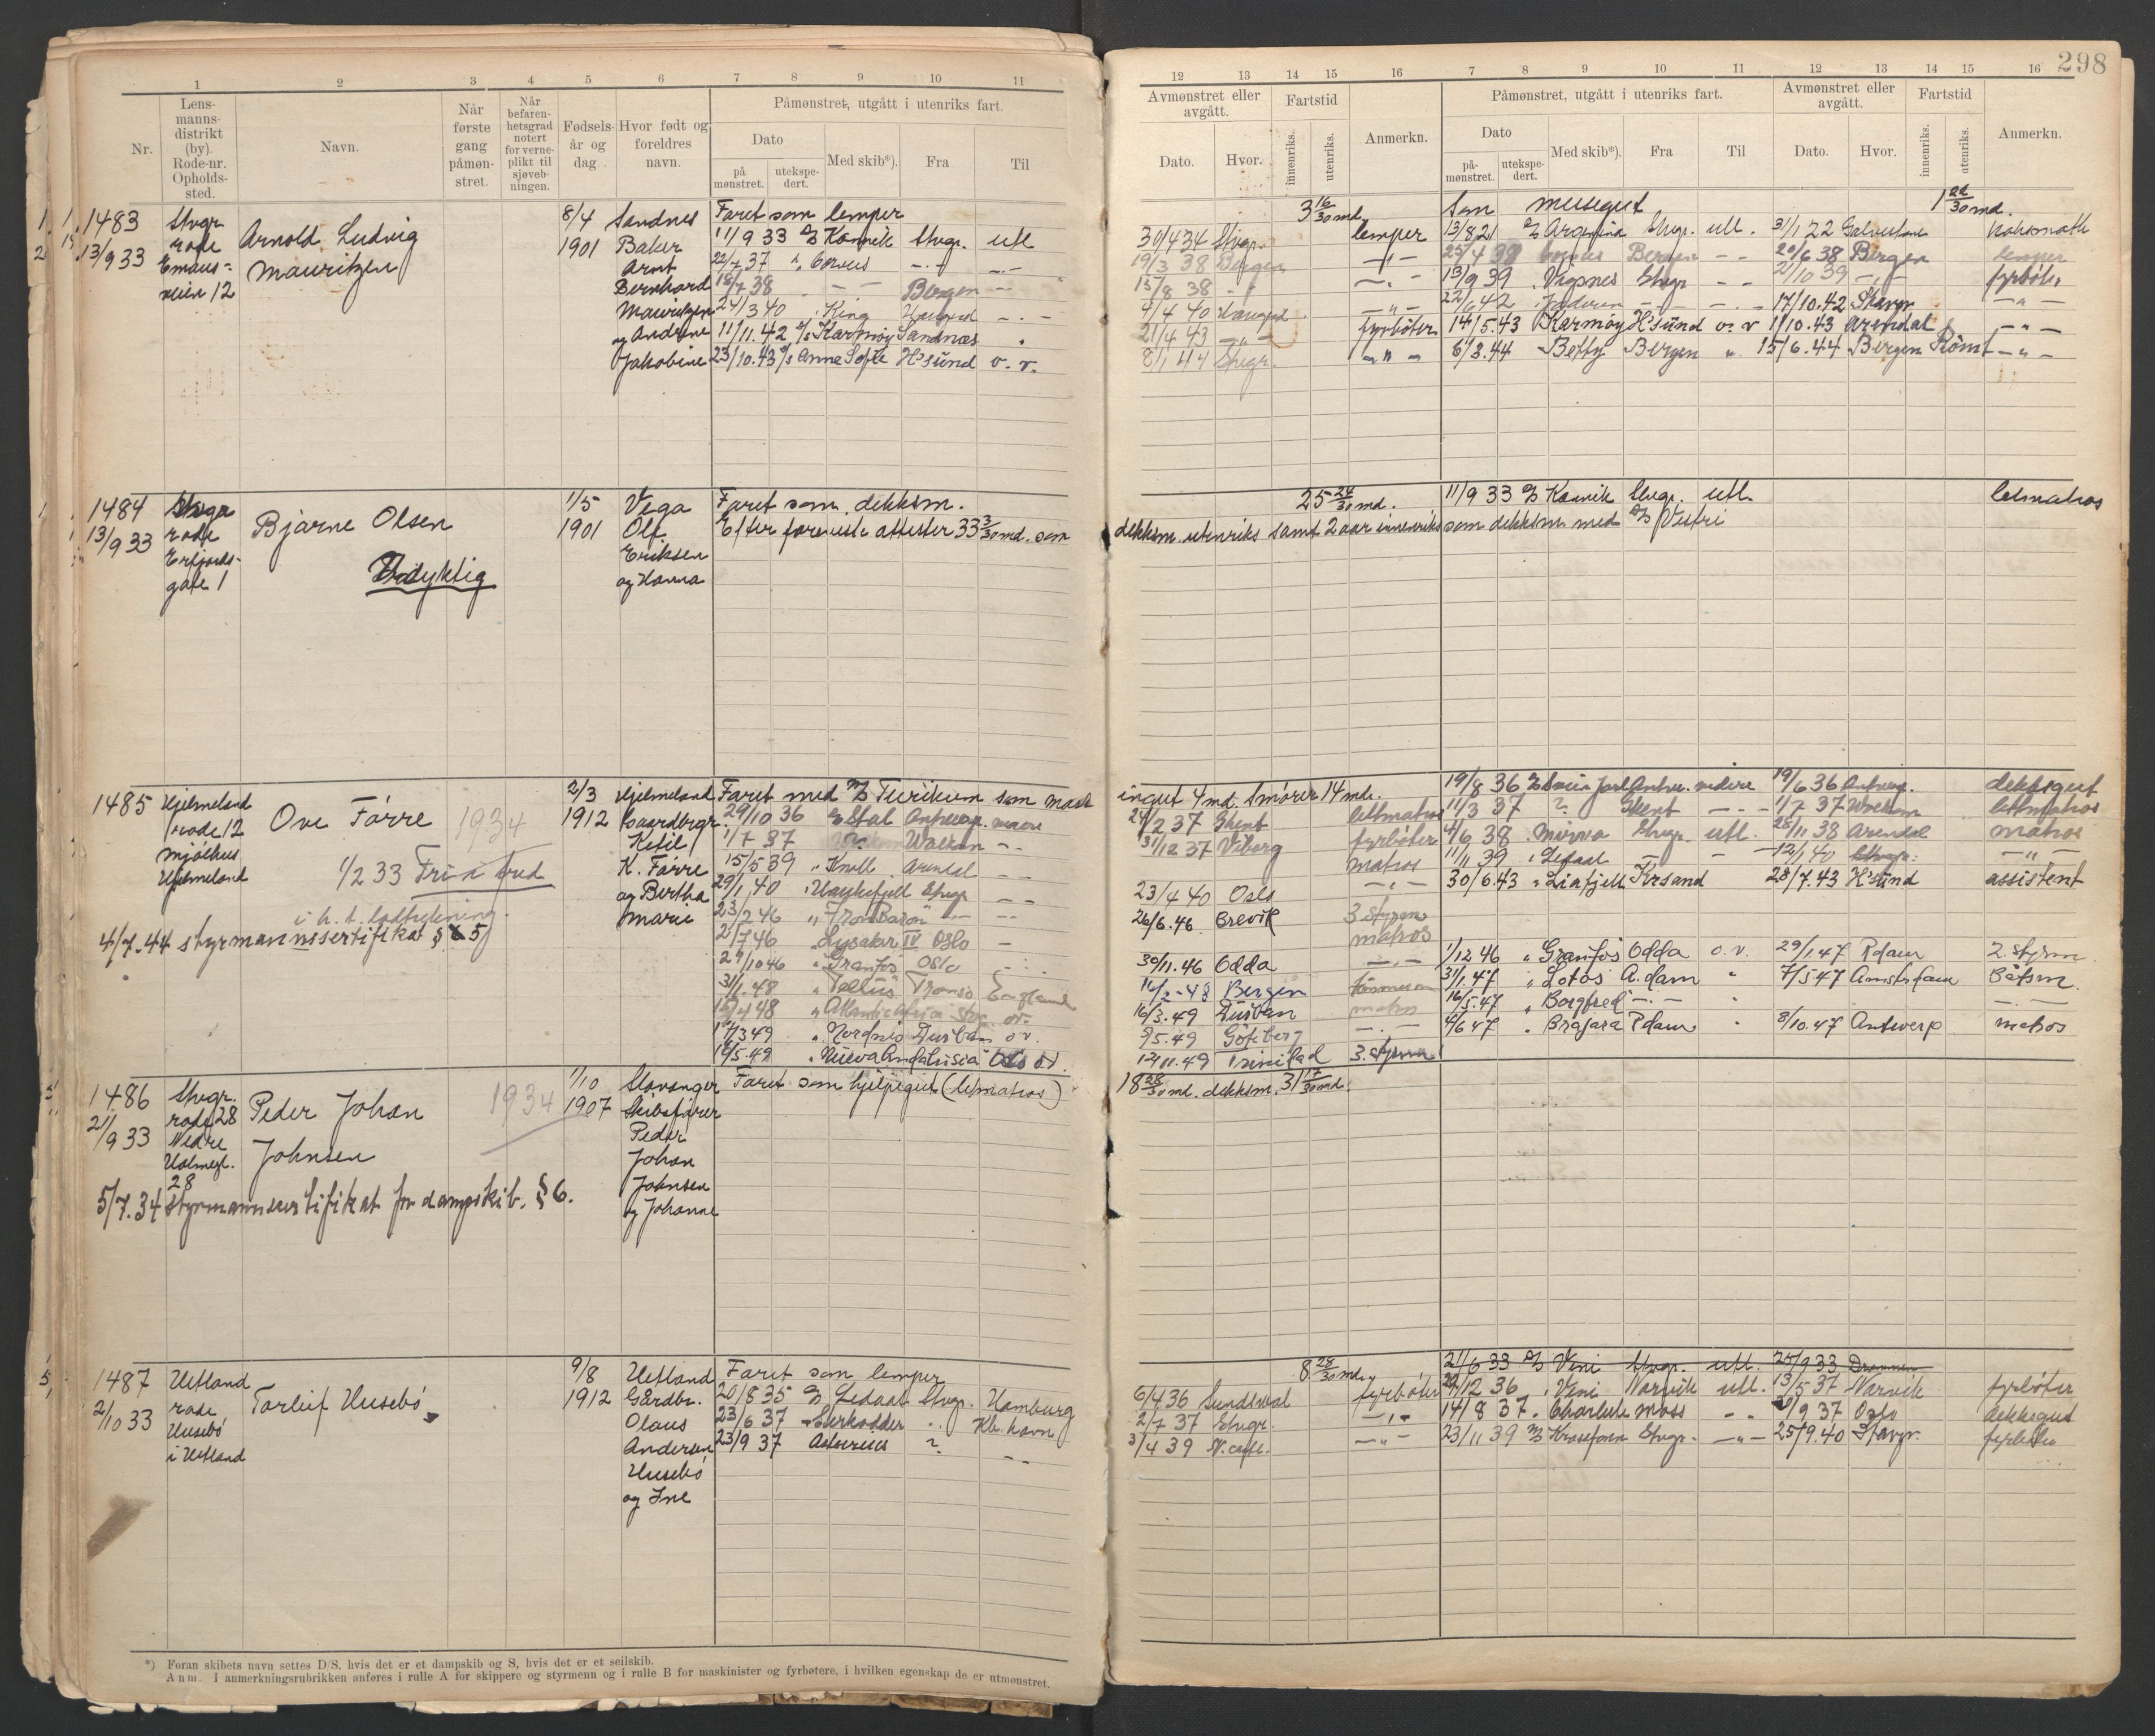 298
1 2 3 4 5 6 7 8 9 10 11
12 13 14 15 16 7 8 9 10 11 12 13 14 15 16
Nr.
Lens-
manns-
distrikt
(by).
Rode-nr.
Opholds-
sted.
Navn.
Når
første
gang
påmøn-
stret.
Når
befaren-
hetsgrad
notert
for verne-
plikt til
sjøveb-
ningen.
Fødsels-
år og
dag.
Hvor født og
foreldres
navn.
Påmønstret, utgått i utenriks fart.
Dato
på
mønstret.
utekspe-
dert.
Med skib*).
Fra
Til
Avmønstret eller
avgått.
Dato.
Hvor.
Fartstid
innenriks.
utenriks.
Anmerkn.
Påmønstret, utgått i utenriks fart.
Dato
på-
mønstret.
utekspe-
dert.
Med skib*).
Fra
Til
Avmønstret eller
avgått.
Dato.
Hvor.
Fartstid
innenriks.
utenriks.
Anmerkn.
1483
13/9 33
Stvgr
rode
Emaus-
veien 12
Arnold Ludvig
Mauritzen
8/4
1901
Sandnes
Baker
Arnt
Bernhard
Mauritzen
og Andrine
Jakobine
Faret som lemper
11/9 33 D/S Kannik Stvgr. utl
22/7 37
15/7 38 Bergen
24/3 40 King
11/11.42 D/S Karmøy Sandnæs
23/10.43 D/S Anna Sofie H'sund v. v.
3 16/30 md.
30/4 34 Stvgr. lemper
19/3 38 Bergen
15/8 38
9/4 40
21/4 43 fyrbøter
8/1 44 Stvgr.
Som messegut
1 22/30 md.
13/8 21 D/S Argentina Stvgr. utl. 31/1 22
Bergen 20/6 38 Bergen lemper
13/9 39 Vigsnes Stvgr 21/10 39 fyrbøter
22/6 42 17/10.42 Stavgr.
14/5.43 Karmøy H'sund v. v 1/10.43 Arendal
6/3.44 Betty Bergen 15/6.44 Bergen
1484
13/9 33
Stvgr
rode
Erfjords-
gate 1
Bjarne Olsen
Udyktig
1/5
1901
Vega
Olf.
Eriksen
og Hanna
Faret som dekksm.
Efter foreviste attester 33 3/30 md. som
25 24/30 md. 11/9 33 D/S Kannik Stvgr. utl. letmatros
dekksm. utenriks samt 2 aar innenriks som dekksm. med D/S Vestri
1485
Hjelmeland
rode 12
Mjölhus
Hjelmeland
Ove Førre
1934
1/2 33 Fri i fred
i h. t. lodtrekning.
4/7.44 styrmannssertifikat § 5
2/3
1912
Hjelmeland
Gaardbrgr.
Ketil
K. Førre
og Bertha
Marie
Faret med M/S Turikum som mask
29/10 36 D/S Stal Antwerp. videre
1/7 37
15/5 39 „ Knoll Arendal
29/1 40 „ Haukefjell Stvgr
23/2 46 „
2/7 46 „ Lysaker IV Oslo
29/10 46 „ Granfos Oslo
31/1.48 „ Tellus Tromsø England
„ Atlantic
„ Nordnis Durban o v.
14/5.49 „ Nueva Andalusia Oslo
ingut 4 md. Smører 14 md.
24/2 37 Ghent letmatros
31/12 37 Viborg fyrbøter
matros
23/4 40 Oslo
26/6.46 Brevik 3. styrm
matros
30/11.46 Odda
14/2-48 Bergen
16/3.49 Durban matros
9/5.49 Göteborg
12/11.49 Trinidad 3. styrm
19/8 36 19/6 36 Antwerp. dekksgut
11/3 37 ? Ghent 1/7 37 letmatros
4/6 38 Stvgr. utl. 28/11 38 Arendal matros
11/11 39 12/1 40 Stvgr.
30/6.43 „ Liafjell Krsand 28/7.43 K'sund assistent
1/12 46 „ Granfos Odda o. v. 29/1.47 Rdam 2. styrm
31/1.47 „ Lotos A.dam 7/5 47 Amsterdam Båtsm.
16/5.47 „ Borgfred
4/6 47 „ Brajara Rdam 8/10.47 Antwerp matros
1486
21/9 33
Stvgr.
rode 28
Nedre
Holmegt.
28
Peder Johan
Johnsen
1934
5/7.34 Styrmannsertifikat for dampskib. § 6.
1/10
1907
Stavanger
Skibsfører
Peder
Johan
Johnsen
og Johanne
Faret som hjelpegut (letmatros)
18 28/30 md. dekksm. 31 17/30 md.
1487
2/10 33
Hetland
rode
Husebö
i Hetland
Torleif Husebö
9/8
1912
Hetland
Gårdbr.
Olaus
Andersen
Husebö
og Ine
Faret som lemper
20/8 35 D/S Ledaal Stvgr. Hamburg
23/6 37 Kb.havn
23/9 37 ?
8 28/30 md.
6/4 36 Sundsvall fyrbøter
2/7 37 Stvgr.
3/4 39
21/6 33 D/S Vini Stvgr. utl. 25/9 33 Drammen
12 36 „ Vini Narvik utl. 13/5 37 Narvik fyrbøter
14/8 37 „ Charlotte Moss 9 37 Oslo dekksgut
23/11 39 Stvgr. 25/9.40 Stavgr. fyrbøter
*) Foran skibets navn settes D/S, hvis det er et dampskib og S, hvis det er et seilskib.
Anm. I anmerkningsrubrikken anføres i rulle A for skippere og styrmenn og i rulle B for maskinister og fyrbøtere, i hvilken egenskap de er utmønstret.